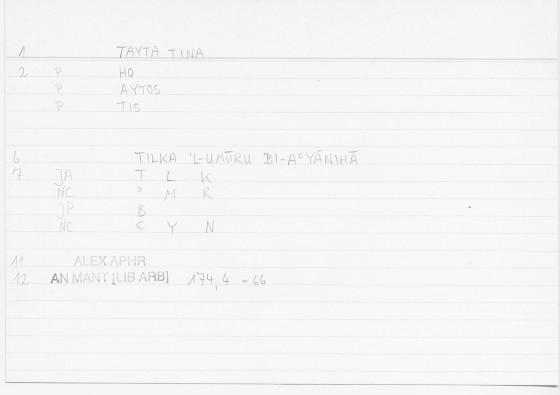 1 TAYTA TINA
2 P HO
P AYTOS
P TIS
6 TILKA 'L-UMŪRU BI-AᶜYĀNIHĀ
7 JA T L K
NC ʾ M R
JP B
NC ᶜ Y N
11 ALEX APHR
12 AN MANT [LIB ARB] 174,4 = 66